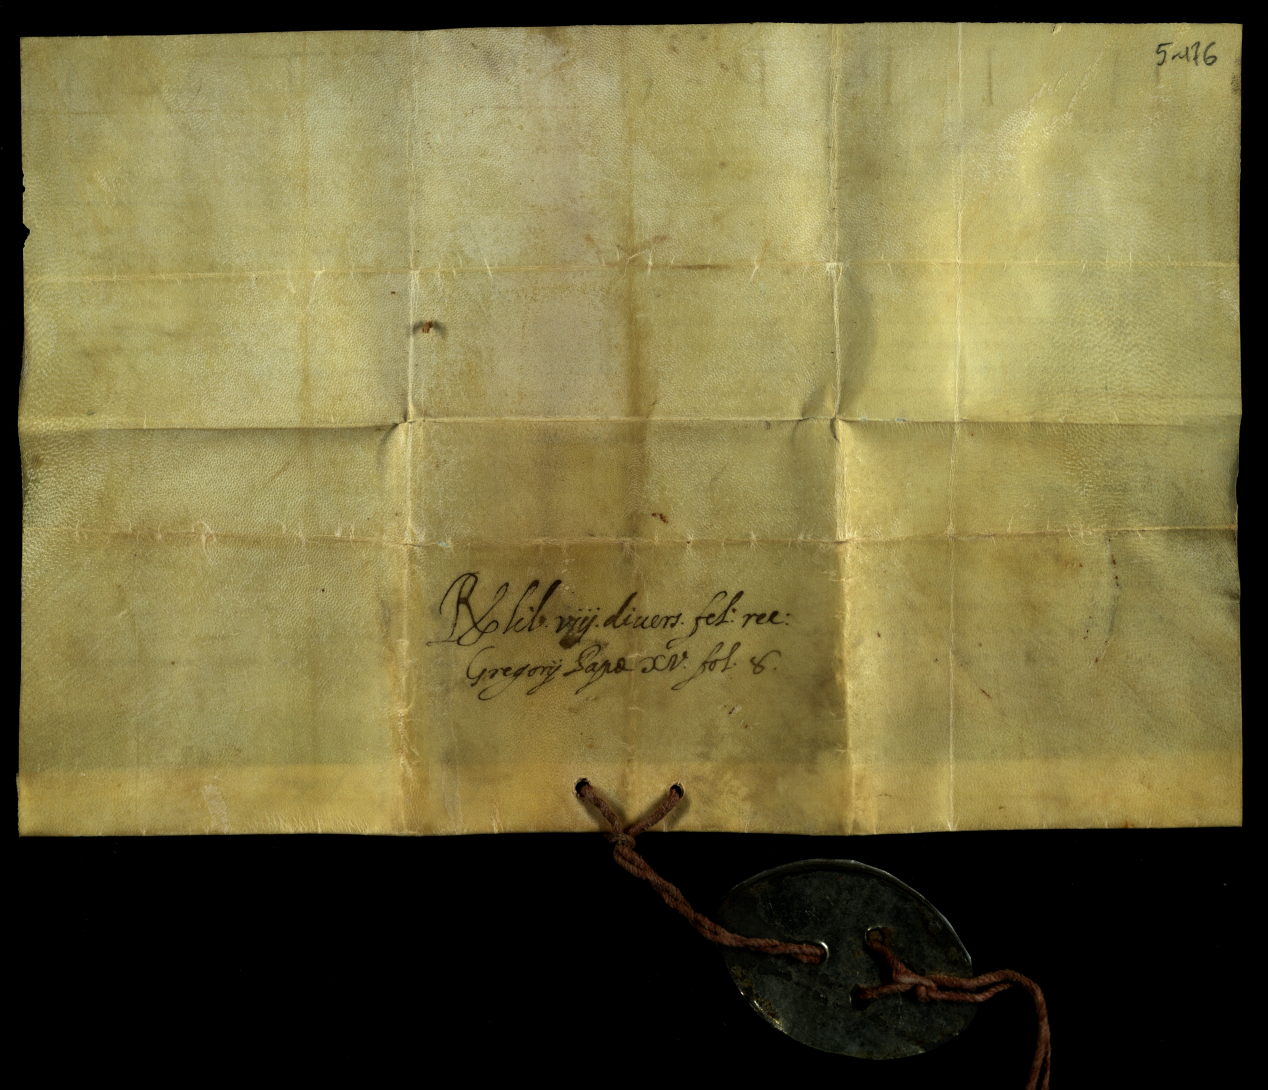 5-176
Rx lib. viij. diuers. fel: rec:
Gregorij Papæ XV. fol. 8.